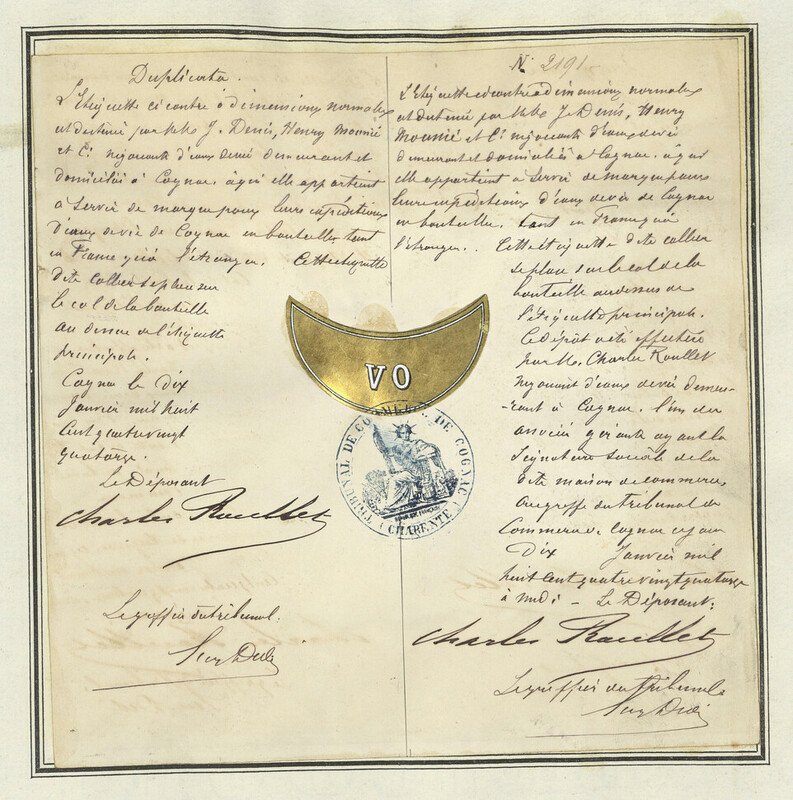 Duplicata.
L'étiquette ci contre à dimensions normales
est destiné par M.M. J. Denis, Henry Mounié
et Cie négociants d'eaux de vie demeurant et
domiciliés à Cognac, à qui elle appartient
à servir de marque pour leurs expéditions
d'eaux de vie de Cognac en bouteilles tant
en France qu'à l'étranger. Cette étiquette
dite collier se place sur
le col de la bouteille
au dessus de l'étiquette
principale.
Cognac le dix
Janvier mil huit
cent quatre vingt
quatorze.
Le Déposant
Charles Roullet
Le greffier du tribunal.
No 2191
L'étiquette ci contre à dimensions normales
est destiné par M.M. J. Denis, Henry
Mounié et Cie négociants d'eaux de vie
demeurant et domiciliés à Cognac, à qui
elle appartient à servir de marque pour
leurs expéditions d'eaux de vie de Cognac
en bouteilles, tant en France qu'à
l'étranger. Cette étiquette dite collier
se place sur le col de la
bouteille au dessus de
l'étiquette principale.
Le dépôt a été effectué
par M. Charles Roullet
négociant d'eaux de vie demeu-
-rant à Cognac, l'un des
associés gérants ayant la
signature sociale de la
dite maison de commerce,
au greffe du tribunal de
Commerce, Cognac ce jour
Dix Janvier mil
huit cent quatre vingt quatorze
à midi - Le Déposant:
Charles Roullet
Le greffier du tribunal
VO
TRIBUNAL DE COMMERCE DE COGNAC
(CHARENTE)